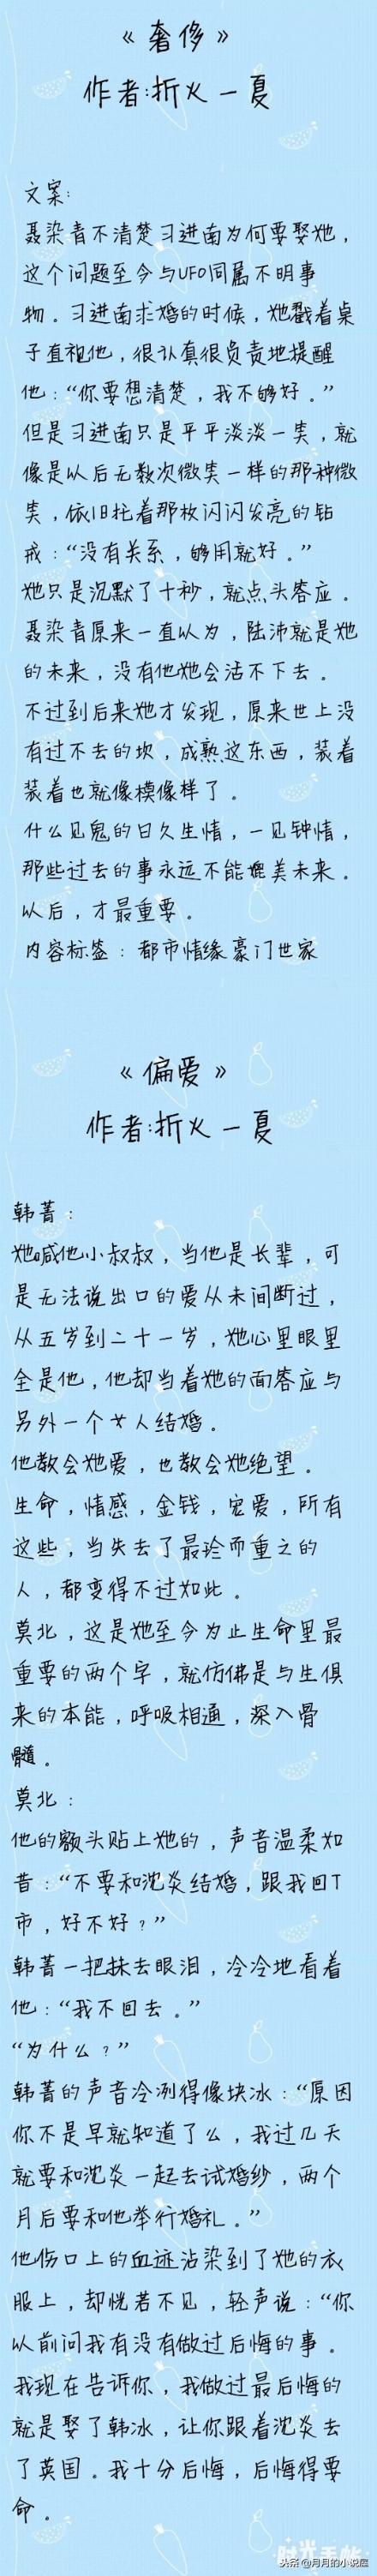 《奢侈》
作者:折火一夏
文案:
聂染青不清楚习进南为何要娶她，
这个问题至今与UFO同属不明事
物。习进南求婚的时候，她戳着桌
子直视他，很认真很负责地提醒
他：“你要想清楚，我不够好。”
但是习进南只是平平淡淡一笑，就
像是以后无数次微笑一样的那种微
笑，依旧托着那枚闪闪发亮的钻
戒：“没有关系，够用就好。”
她只是沉默了十秒，就点头答应。
聂染青原来一直以为，陆沛就是她
的未来，没有他她会活不下去。
不过到后来她才发现，原来世上没
有过不去的坎，成熟这东西，装着
装着也就像模像样了。
什么见鬼的日久生情，一见钟情，
那些过去的事永远不能媲美未来。
以后，才最重要。
内容标签：都市情缘豪门世家
《偏爱》
作者:折火一夏
韩菁：
她喊他小叔叔，当他是长辈，可
是无法说出口的爱从未间断过，
从五岁到二十一岁，她心里眼里
全是他，他却当着她的面答应与
另外一个女人结婚。
他教会她爱，也教会她绝望。
生命，情感，金钱，宠爱，所有
这些，当失去了最珍而重之的
人，都变得不过如此。
莫北，这是她至今为止生命里最
重要的两个字，就仿佛是与生俱
来的本能，呼吸相通，深入骨
髓。
莫北：
他的额头贴上她的，声音温柔如
昔：“不要和沈炎结婚，跟我回T
市，好不好？”
韩菁一把抹去眼泪，冷冷地看着
他：“我不回去。”
“为什么？”
韩菁的声音冷冽得像块冰：“原因
你不是早就知道了么，我过几天
就要和沈炎一起去试婚纱，两个
月后要和他举行婚礼。”
他伤口上的血迹沾染到了她的衣
服上，却恍若不见，轻声说：“你
以前问我有没有做过后悔的事。
我现在告诉你，我做过最后悔的
就是娶了韩冰，让你跟着沈炎去
了英国。我十分后悔，后悔得要
命。
时光手帐
头条@月月的小说屋